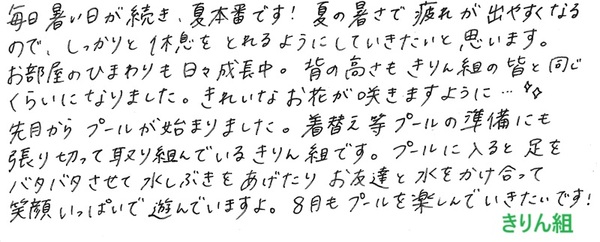 毎日暑い日が続き、夏本番です！夏の暑さで疲れが出やすくなる
ので、しっかりと休息をとれるようにしていきたいと思います。
お部屋のひまわりも日々成長中。背の高さもきりん組の皆と同じ
くらいになりました。きれいなお花が咲きますように…
先月からプールが始まりました。着替え等プールの準備にも
張り切って取り組んでいるきりん組です。プールに入ると足を
バタバタさせて水しぶきをあげたりお友達と水をかけ合って
笑顔いっぱいで遊んでいますよ。8月もプールを楽しんでいきたいです!
きりん組